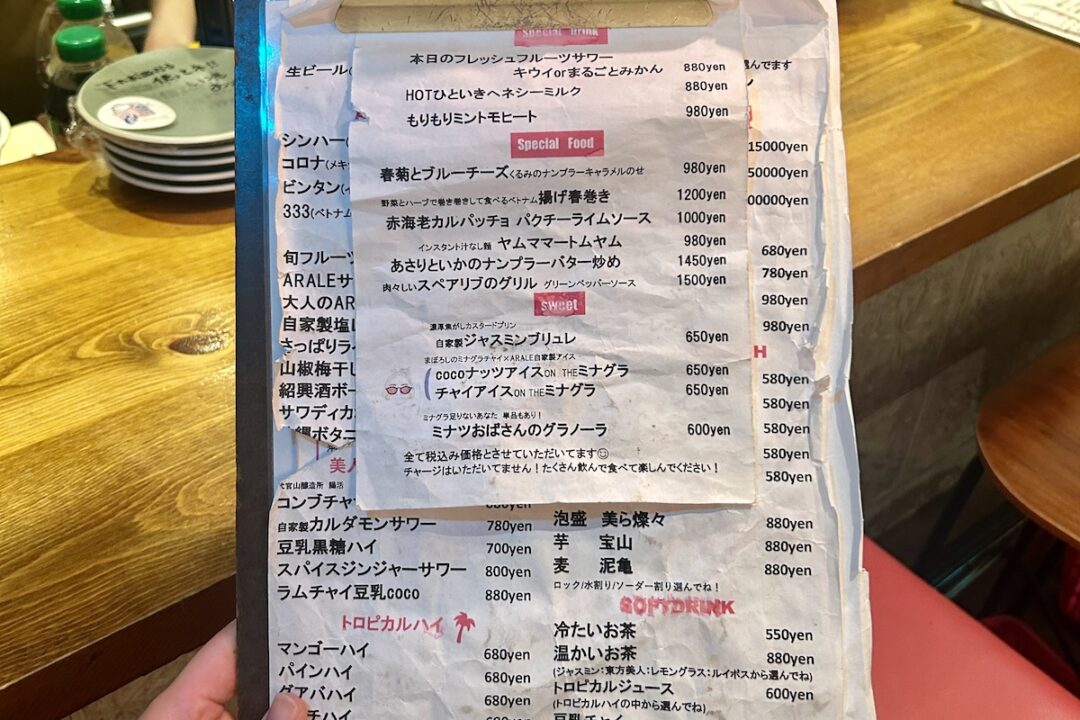 Special Drink
本日のフレッシュフルーツサワー
キウイorまるごとみかん 880yen
HOTひといきヘネシーミルク 880yen
もりもりミントモヒート 980yen
Special Food
春菊とブルーチーズくるみのナンプラーキャラメルのせ 980yen
野菜とハーブで巻き巻きして食べるベトナム揚げ春巻き 1200yen
赤海老カルパッチョ パクチーライムソース 1000yen
インスタント汁なし麺 ヤムママートムヤム 980yen
あさりといかのナンプラーバター炒め 1450yen
肉々しいスペアリブのグリル グリーンペッパーソース 1500yen
sweet
濃厚焦がしカスタードプリン
自家製ジャスミンブリュレ 650yen
まぼろしのミナグラチャイ×ARALE自家製アイス
cocoナッツアイスON THEミナグラ 650yen
チャイアイスON THEミナグラ 650yen
ミナグラ足りないあなた 単品もあり!
ミナツおばさんのグラノーラ 600yen
全て税込み価格とさせていただいてます☺
チャージはいただいてません!たくさん飲んで食べて楽しんでください!
生ビール
シンハー
コロナ(メキ
ビンタン(イ
333(ベトナム
旬フルーツ
ARALEサ
大人のAR
自家製塩レ
さっぱりライ
山椒梅干し
紹興酒ボー
サワディカ
ボタニ
美人
代官山醸造所 腸活
コンブチャ
自家製カルダモンサワー 780yen
豆乳黒糖ハイ 700yen
スパイスジンジャーサワー 800yen
ラムチャイ豆乳coco 880yen
トロピカルハイ
マンゴーハイ 680yen
パインハイ 680yen
グアバハイ 680yen
チハイ
選んでます
15000yen
680yen
780yen
980yen
980yen
H
580yen
580yen
580yen
580yen
580yen
泡盛 美ら燦々 880yen
芋 宝山 880yen
麦 泥亀 880yen
ロック/水割り/ソーダー割り選んでね!
SOFTDRINK
冷たいお茶 550yen
温かいお茶 880yen
(ジャスミン:東方美人:レモングラス:ルイボスから選んでね)
トロピカルジュース 600yen
(トロピカルハイの中から選んでね)
豆乳チャイ